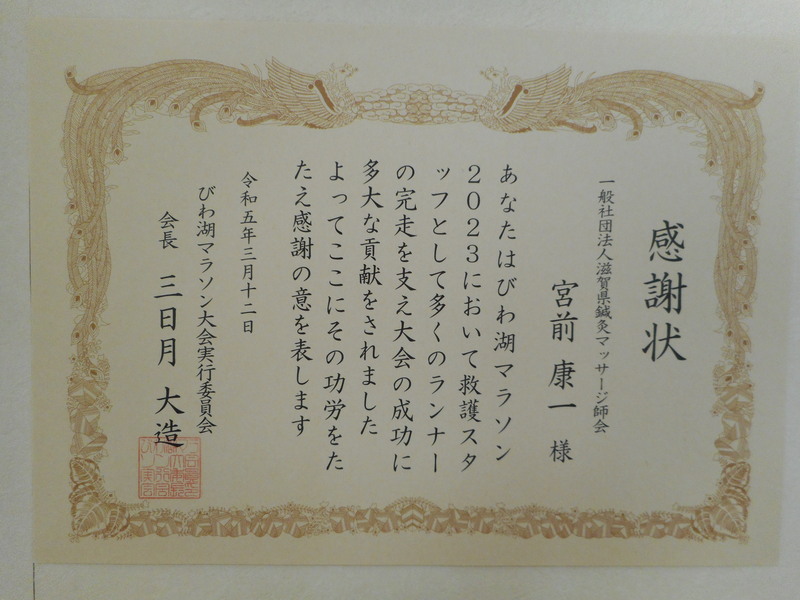 感謝状
一般社団法人滋賀県鍼灸マッサージ師会
宮前 康一 様
あなたはびわ湖マラソン
2023において救護スタ
ッフとして多くのランナー
の完走を支え大会の成功に
多大な貢献をされました
よってここにその功労をた
たえ感謝の意を表します
令和五年三月十二日
びわ湖マラソン大会実行委員会
会長 三日月 大造